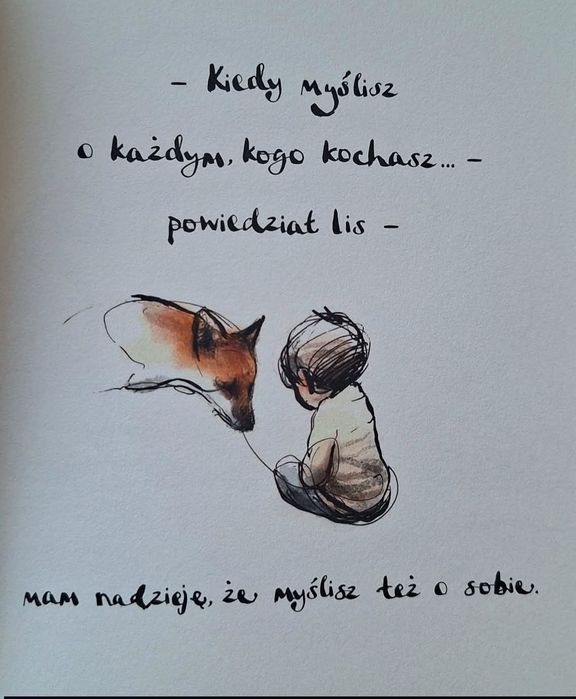 – Kiedy myślisz
o każdym, kogo kochasz... –
powiedział lis –
mam nadzieję, że myślisz też o sobie.